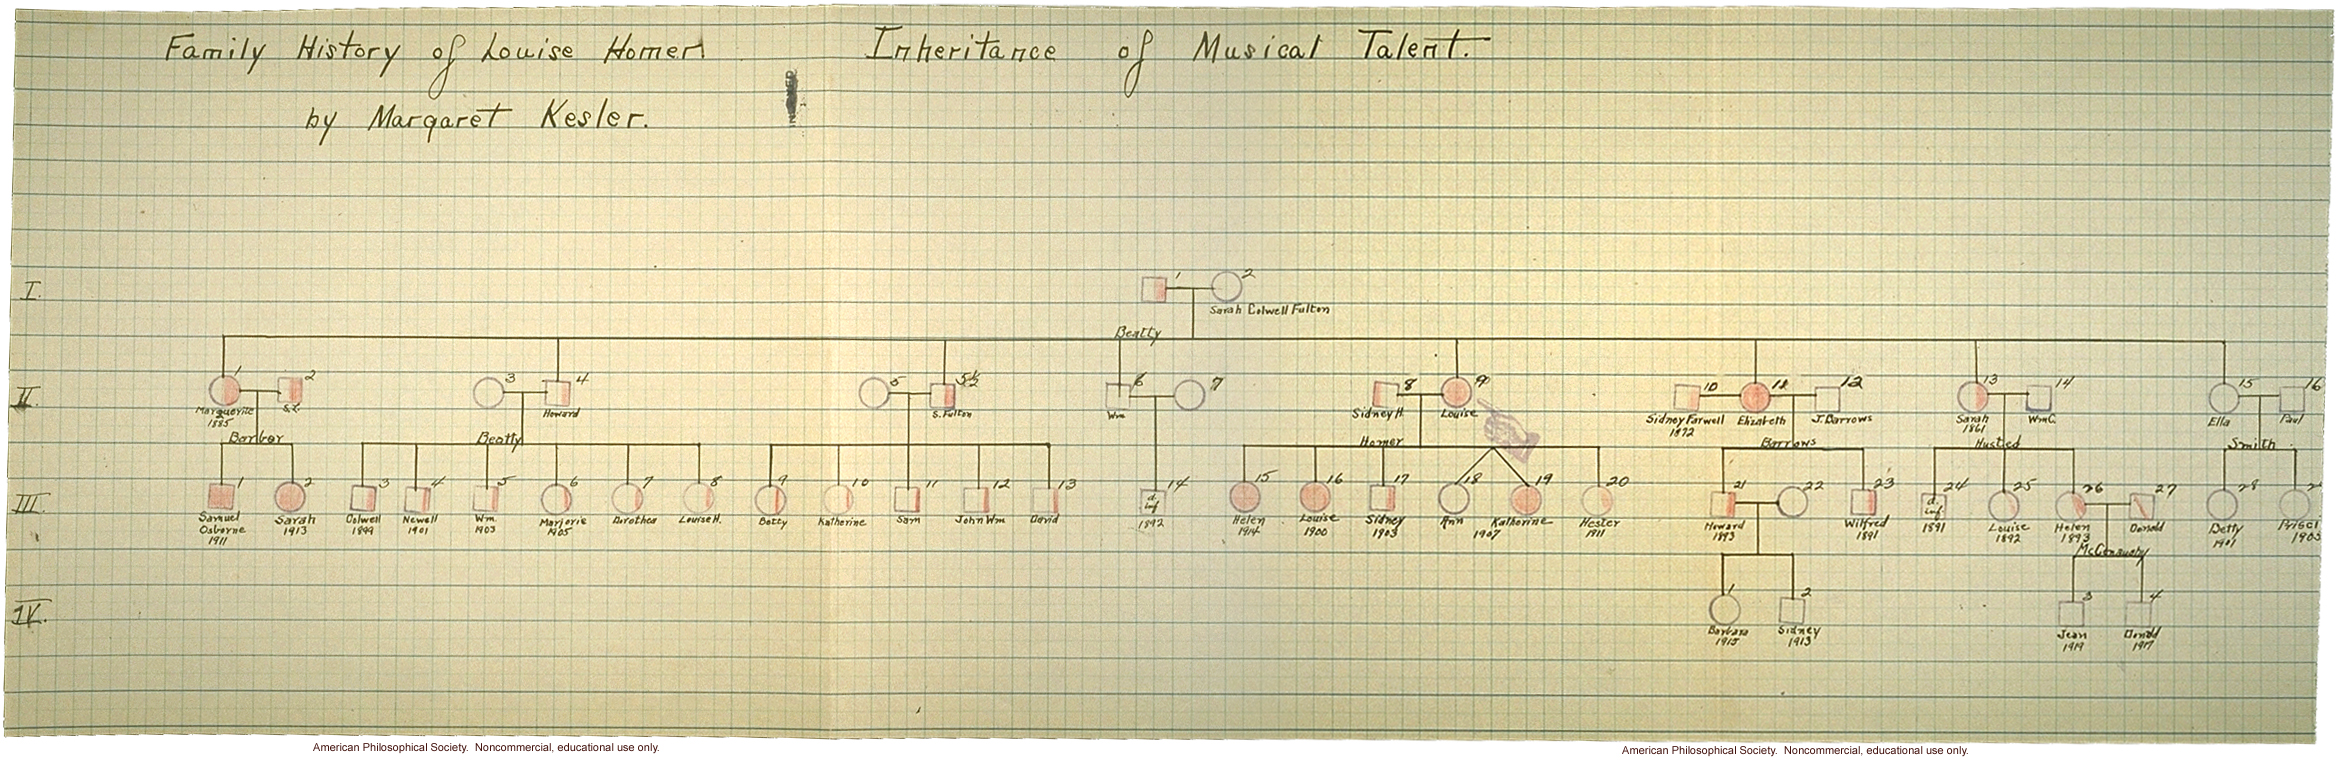 Family History of Louise Homer Inheritance of Musical Talent.
by Margaret Kesler.
I.
1 2
Sarah Colwell Fulton
Beatty
II
1 2 3 4 5 5½ 6 7 8 9 10 11 12 13 14 15 16
Marguerite S.L. Howard S. Fulton Wm Sidney H. Louise Sidney Farwell Elizabeth J. Barrows Sarah Wm C. Ella Paul
1885 1872 1861
Barber Beatty Homer Barrows Husted Smith
III
1 2 3 4 5 6 7 8 9 10 11 12 13 14 15 16 17 18 19 20 21 22 23 24 25 26 27 28
d. inf d. inf
Samuel Osborne Sarah Colwell Newell Wm. Marjorie Dorothea Louise H. Betty Katherine Sam John Wm David Helen Louise Sidney Ann Katherine Hester Howard Wilfred Louise Helen Donald Betty
1911 1913 1899 1901 1903 1905 1892 1914 1900 1903 1907 1911 1893 1891 1891 1892 1893 1901
IV.
1 2 3 4
Barbara Sidney Jean Donald
1915 1913 1919 1917
American Philosophical Society. Noncommercial, educational use only.
American Philosophical Society. Noncommercial, educational use only.